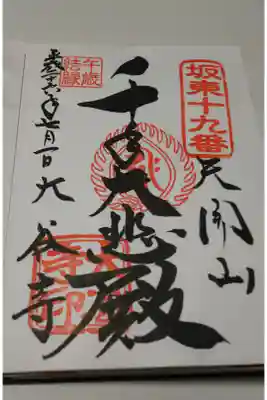 坂東十九番
天開山
千手大悲殿
午歳
結縁
平成二十六年 月一日
大谷寺